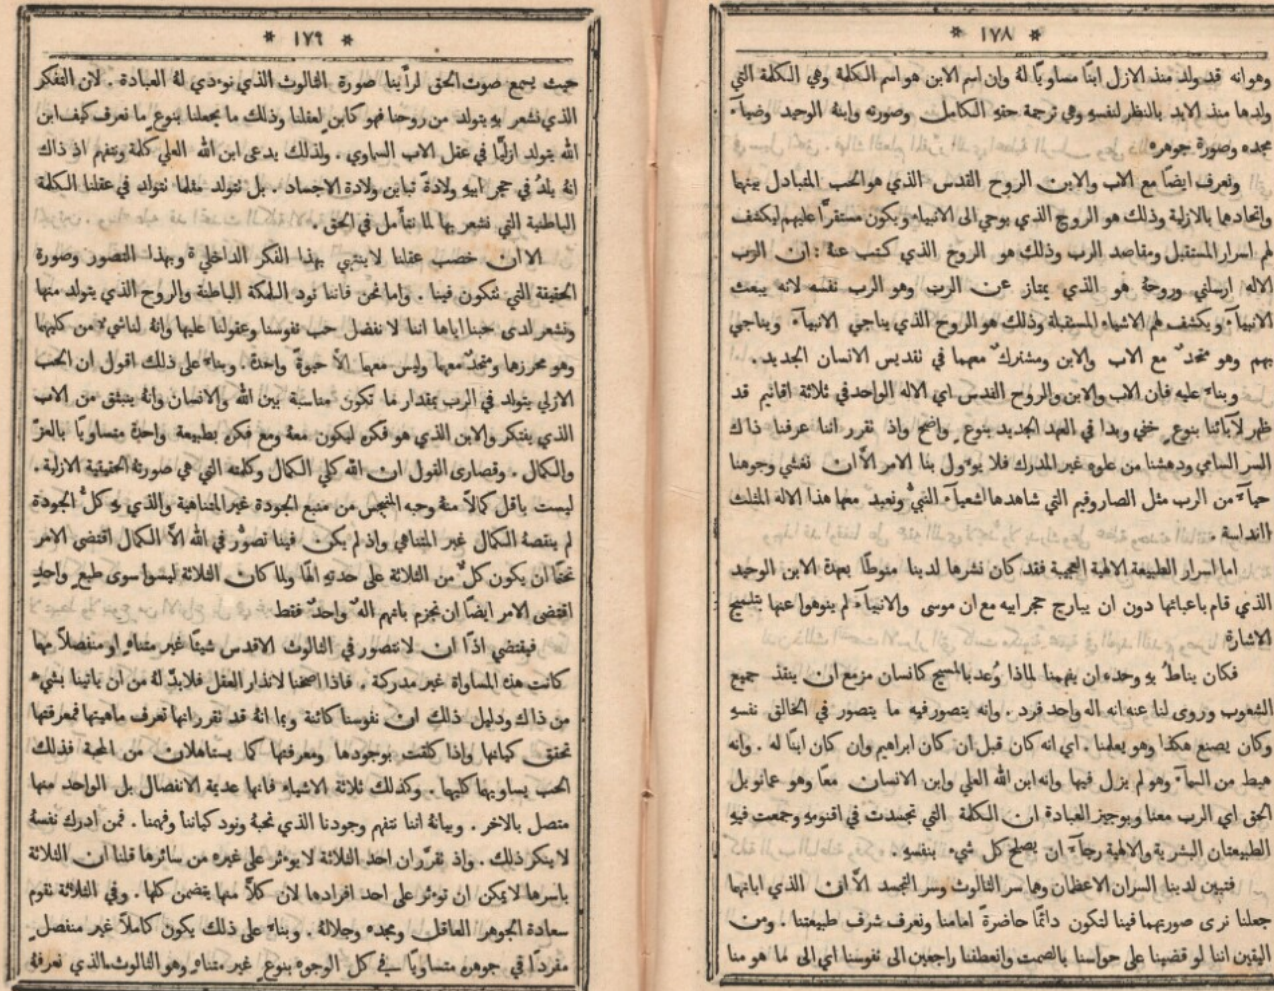 * ١٧٨ *
وهو انه قد ولد منذ الازل ابنًا مساويًا لهُ وان اسم الابن هو اسم الكلمة وهي الكلمة التي
ولدها منذ الابد بالنظر لنفسهِ وهي ترجمة حقهِ الكامل وصورته وابنهُ الوحيد وضياءَ
مجده وصورة جوهره
ونعرف ايضًا مع الاب والابن الروح القدس الذي هو الحب المتبادل بينهما
واتحادهما بالازلية وذلك هو الروح الذي يوحي الى الانبياء ويكون مستقرًّا عليهم ليكشف
لهم اسرار المستقبل ومقاصد الرب وذلك هو الروح الذي كتب عنهُ : ان الرب
الاله ارسلني وروحهُ هو الذي يمتاز عن الرب وهو الرب نفسه لانه يبعث
الانبياءَ ويكشف لهم الاشياء المستقبلة وذلك هو الروح الذي يناجي الانبياءَ ويناجي
بهم وهو متحدٌ مع الاب والابن ومشتركٌ معهما في تقديس الانسان الجديد .
وبناءً عليه فان الاب والابن والروح القدس اي الاله الواحد في ثلاثة اقانيم قد
ظهر لآبائنا بنوعٍ خفي وبدا في العهد الجديد بنوعٍ واضح واذ تقرر اننا عرفنا ذاك
السر السامي ودهشنا من علوهِ غير المدرك فلا يوءول بنا الامر الاَّ ان نغشي وجوهنا
حياءً من الرب مثل الصاروفيم التي شاهدها اشعياءَ النبيُّ ونعبد معها هذا الاله المثلث
القداسة .
اما اسرار الطبيعة الالهية العجيبة فقد كان نشرها لدينا منوطًا بعهدة الابن الوحيد
الذي قام باعبائها دون ان يبارح حجر ابيه مع ان موسى والانبياءَ لم ينوهوا عنها بتلميح
الاشارة
فكان يناط بهِ وحده ان يفهمنا لماذا وُعد بالمسيح كانسان مزمع ان ينقذ جميع
الشعوب وروى لنا عنه انه اله واحد فرد . وانه يتصور فيه ما يتصور في الخالق نفسهِ
وكان يصنع هكذا وهو يعلمنا . اي انه كان قبل ان كان ابراهيم وان كان ابنًا له . وانه
هبط من السماءَ وهو لم يزل فيها وانه ابن الله العلي وابن الانسان معًا وهو عمانوئل
الحق اي الرب معنا وبوجيز العبادة ان الكلمة التي تجسدت في اقنومهِ وجمعت فيهِ
الطبيعتان البشرية والالهية رجاءَ ان يصلح كل شيءٍ بنفسهِ .
فتبين لدينا السران الاعظمان وهما سر الثالوث وسر التجسد الاَّ ان الذي ابانهما
جعلنا نرى صورتهما فينا لتكون دائمًا حاضرةً امامنا ونعرف شرف طبيعتنا . ومن
اليقين اننا لو قضينا على حواسنا بالصمت وانعطفنا راجعين الى نفوسنا اي الى ما هو منا
* ١٧٩ *
حيث يسمع صوت الحق لرأينا صورة الثالوث الذي نوءدي لهُ العبادة . لان التفكر
الذي نشعر بهِ يتولد من روحنا فهو كابنٍ لعقلنا وذلك ما يجعلنا بنوعٍ ما نعرف كيف ابن
الله يتولد ازليًّا في عقل الاب السماوي . ولذلك يدعى ابن الله العلي كلمة ونتفهم اذ ذاك
انهُ يلدُ في حجر ابيهِ ولادةً تباين ولادة الاجساد . بل نتولد مثلما نتولد في عقلنا الكلمة
الباطنية التي نشعر بها لما نتأمل في الحق .
الا ان خصب عقلنا لا ينتهي بهذا الفكر الداخليّ وبهذا التصور وصورة
الحقيقة التي نتكون فينا . واما نحن فاننا نود الملكة الباطنة والروح الذي يتولد منها
ونشعر لدى حبنا اياها اننا لا نفضل حب نفوسنا وعقولنا عليها وانهُ لناشيءٌ من كليهما
وهو محرزها ومتحدٌ معها وليس معهما الاَّ حيوةً واحدةً . وبناءً على ذلك اقول ان الحب
الازلي يتولد في الرب بمقدار ما تكون مناسبة بين الله والانسان وانهُ ينبثق من الاب
الذي يفتكر والابن الذي هو فكره ليكون معهُ ومع فكره بطبيعة واحدة متساويًا بالعزّ
والكمال . وقصارى القول ان الله كلي الكمال وكلمته التي هي صورتهُ الحقيقية الازلية .
ليست باقل كمالاً منهُ وحبه المنبجس من منبع الجودة غير المتناهية والذي بهِ كلُّ الجودة
لم ينقصهُ الكمال غير المتناهي واذ لم يكن فينا تصوُّر في الله الاَّ الكمال اقتضى الامر
تحقًا ان يكون كلٌّ من الثلاثة على حدتهِ الهًا ولما كان الثلاثة ليسوا سوى طبعٍ واحدٍ
اقتضى الامر ايضًا ان نجزم بانهم الهٌ واحدٌ فقط
فيقتضي اذًا ان لا نتصور في الثالوث الاقدس شيئًا غير متناهٍ او منفصلاً مهما
كانت هذه المساواة غير مدركة . فاذا اصخنا لانذار العقل فلا بدَّ لهُ من ان ياتينا بشيءٍ
من ذاك ودليل ذلك ان نفوسنا كائنة وبما انهُ قد تقرر انها تعرف ماهيتها فمعرفتها
تحقق كيانها واذا كفت بوجودها ومعرفتها كما يستاهلان من المحبة فذلك
الحب يساويهما كليهما . وكذلك ثلاثة الاشياء فانها عديمة الانفصال بل الواحد منها
متصل بالاخر . وبيانهُ اننا نتفهم وجودنا الذي نحبهُ ونود كياننا وفهمنا . فمن ادرك نفسهُ
لا ينكر ذلك . واذ تقرَّر ان احد الثلاثة لا يوءثر على غيره من سائرها قلنا ان الثلاثة
باسرها لا يمكن ان توءثر على احد افرادها لان كلاًّ منها يتضمن كلها . وفي الثلاثة تقوم
سعادة الجوهر العاقل ومجده وجلالهُ . وبناءً على ذلك يكون كاملاً غير منفصلٍ
مفردًا في جوهره متساويًا في كل الوجوه بنوعٍ غير متناهٍ وهو الثالوث الذي نعرفهُ